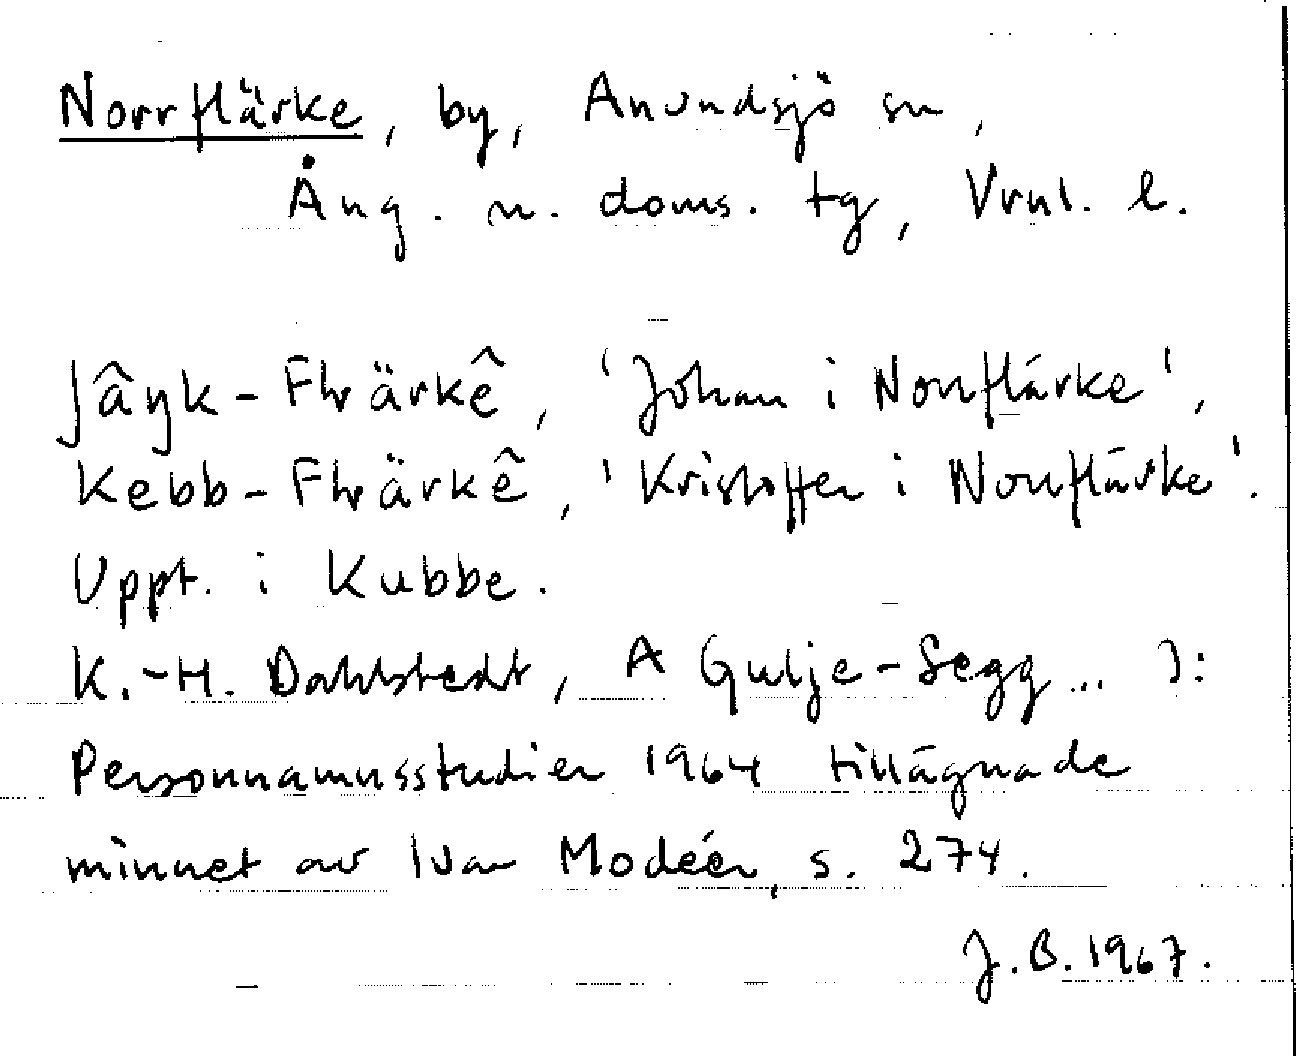 Norrflärke, by, Anundsjö sn,
Ång. n. doms. tg, Vrnl. l.
Jâŋk-Fhrärkê, 'Johan i Norrflärke',
Kebb-Fhrärkê, 'Kristoffer i Norrflärke'.
Uppt. i Kubbe.
K.-H. Dahlstedt, A Gulje-Segg... I:
Personnamnsstudier 1964 tillägnade
minnet av Ivar Modéer, s. 274.
J.B. 1967.